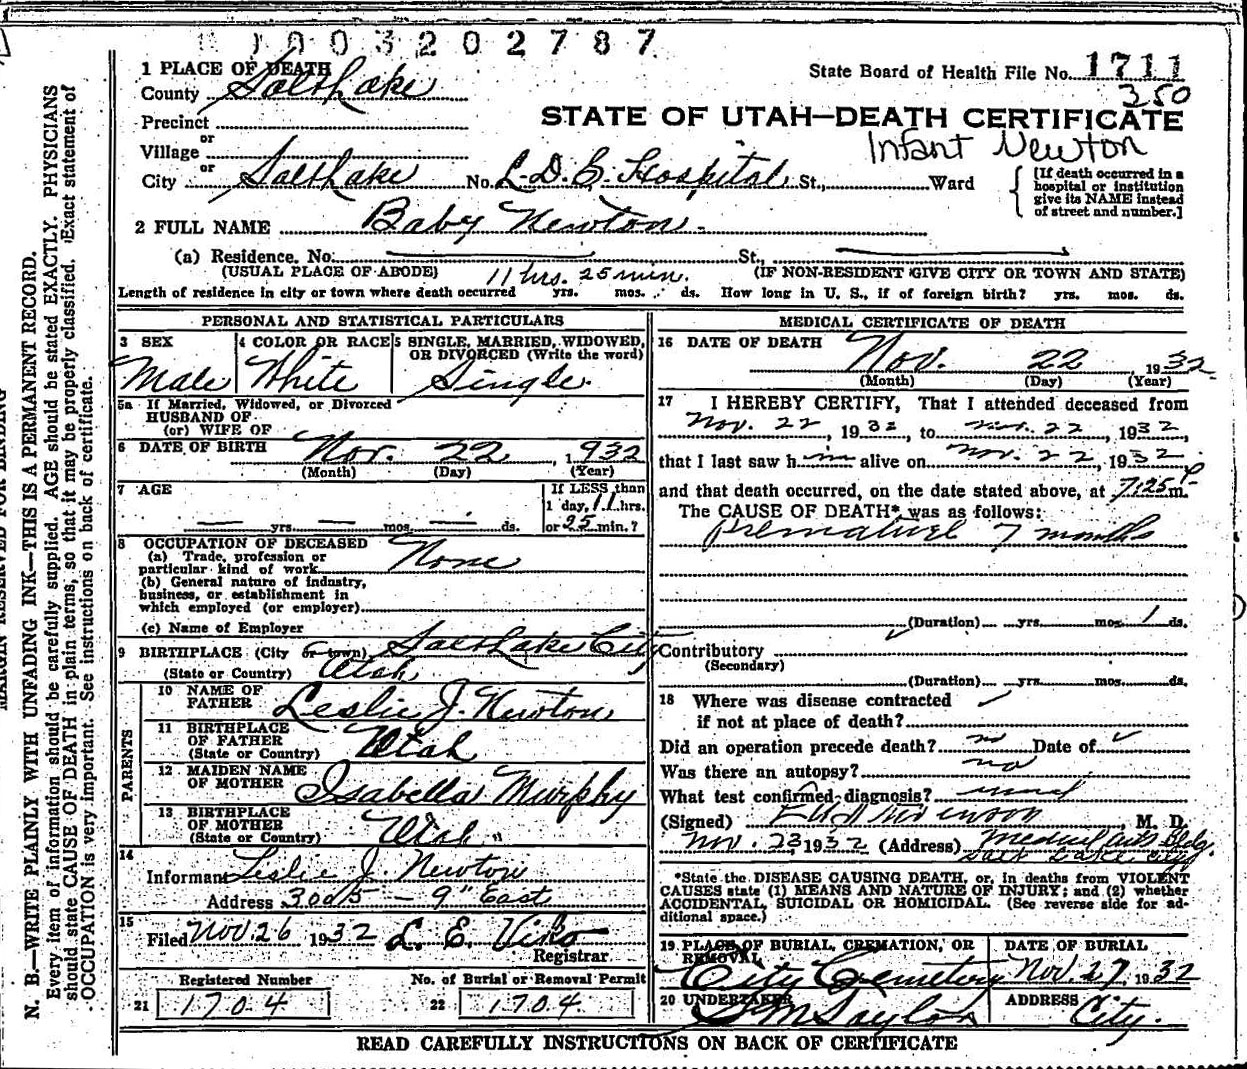 1003202787
1 PLACE OF DEATH
County Salt Lake
State Board of Health File No. 1711
350
Precinct
STATE OF UTAH—DEATH CERTIFICATE
or
Village
Infant Newton
or
City Salt Lake No. L. D. S. Hospital St., Ward
[If death occurred in a hospital or institution give its NAME instead of street and number.]
2 FULL NAME Baby Newton.
(a) Residence. No. St.,
(USUAL PLACE OF ABODE) (IF NON-RESIDENT GIVE CITY OR TOWN AND STATE)
11 hrs. 25 min.
Length of residence in city or town where death occurred yrs. mos. ds. How long in U. S., if of foreign birth? yrs. mos. ds.
PERSONAL AND STATISTICAL PARTICULARS
3 SEX
Male
4 COLOR OR RACE
White
5 SINGLE, MARRIED, WIDOWED,
OR DIVORCED (Write the word)
Single.
5a If Married, Widowed, or Divorced
HUSBAND OF
(or) WIFE OF
6 DATE OF BIRTH Nov. 22, 1932
(Month) (Day) (Year)
7 AGE
yrs. mos. ds.
If LESS than
1 day, 11 hrs.
or 25 min.?
8 OCCUPATION OF DECEASED
(a) Trade, profession or
particular kind of work None
(b) General nature of industry,
business, or establishment in
which employed (or employer)
(c) Name of Employer
9 BIRTHPLACE (City or town) Salt Lake City
(State or Country) Utah
PARENTS
10 NAME OF
FATHER Leslie J. Newton
11 BIRTHPLACE
OF FATHER
(State or Country) Utah
12 MAIDEN NAME
OF MOTHER Isabella Murphy
13 BIRTHPLACE
OF MOTHER
(State or Country) Utah "
14
Informant Leslie J. Newton
Address 3005 - 9" East
15
Filed Nov. 26 1932 L. E. Viko
Registrar.
Registered Number
21 1704
No. of Burial or Removal Permit
22 1704
MEDICAL CERTIFICATE OF DEATH
16 DATE OF DEATH
Nov. 22, 1932
(Month) (Day) (Year)
17 I HEREBY CERTIFY, That I attended deceased from
Nov. 22, 1932, to Nov. 22, 1932,
that I last saw him alive on Nov. 22, 1932
and that death occurred, on the date stated above, at 7:25 P m.
The CAUSE OF DEATH* was as follows:
Premature 7 months
(Duration) yrs. mos. 1 ds.
Contributory
(Secondary)
(Duration) yrs. mos. ds.
18 Where was disease contracted
if not at place of death?
Did an operation precede death? no Date of
Was there an autopsy? no
What test confirmed diagnosis?
(Signed) M. D.
Nov. 23, 1932 (Address) Medical Arts Bldg.
Salt Lake City
*State the DISEASE CAUSING DEATH, or, in deaths from VIOLENT
CAUSES state (1) MEANS AND NATURE OF INJURY; and (2) whether
ACCIDENTAL, SUICIDAL OR HOMICIDAL. (See reverse side for ad-
ditional space.)
19 PLACE OF BURIAL, CREMATION, OR
REMOVAL
City Cemetery
DATE OF BURIAL
Nov. 27, 1932
20 UNDERTAKER
S M Taylor
ADDRESS
City.
READ CAREFULLY INSTRUCTIONS ON BACK OF CERTIFICATE
MARGIN RESERVED FOR BINDING
N. B.—WRITE PLAINLY WITH UNFADING INK—THIS IS A PERMANENT RECORD.
Every item of information should be carefully supplied. AGE should be stated EXACTLY. PHYSICIANS
should state CAUSE OF DEATH in plain terms, so that it may be properly classified. Exact statement of
OCCUPATION is very important. See instructions on back of certificate.